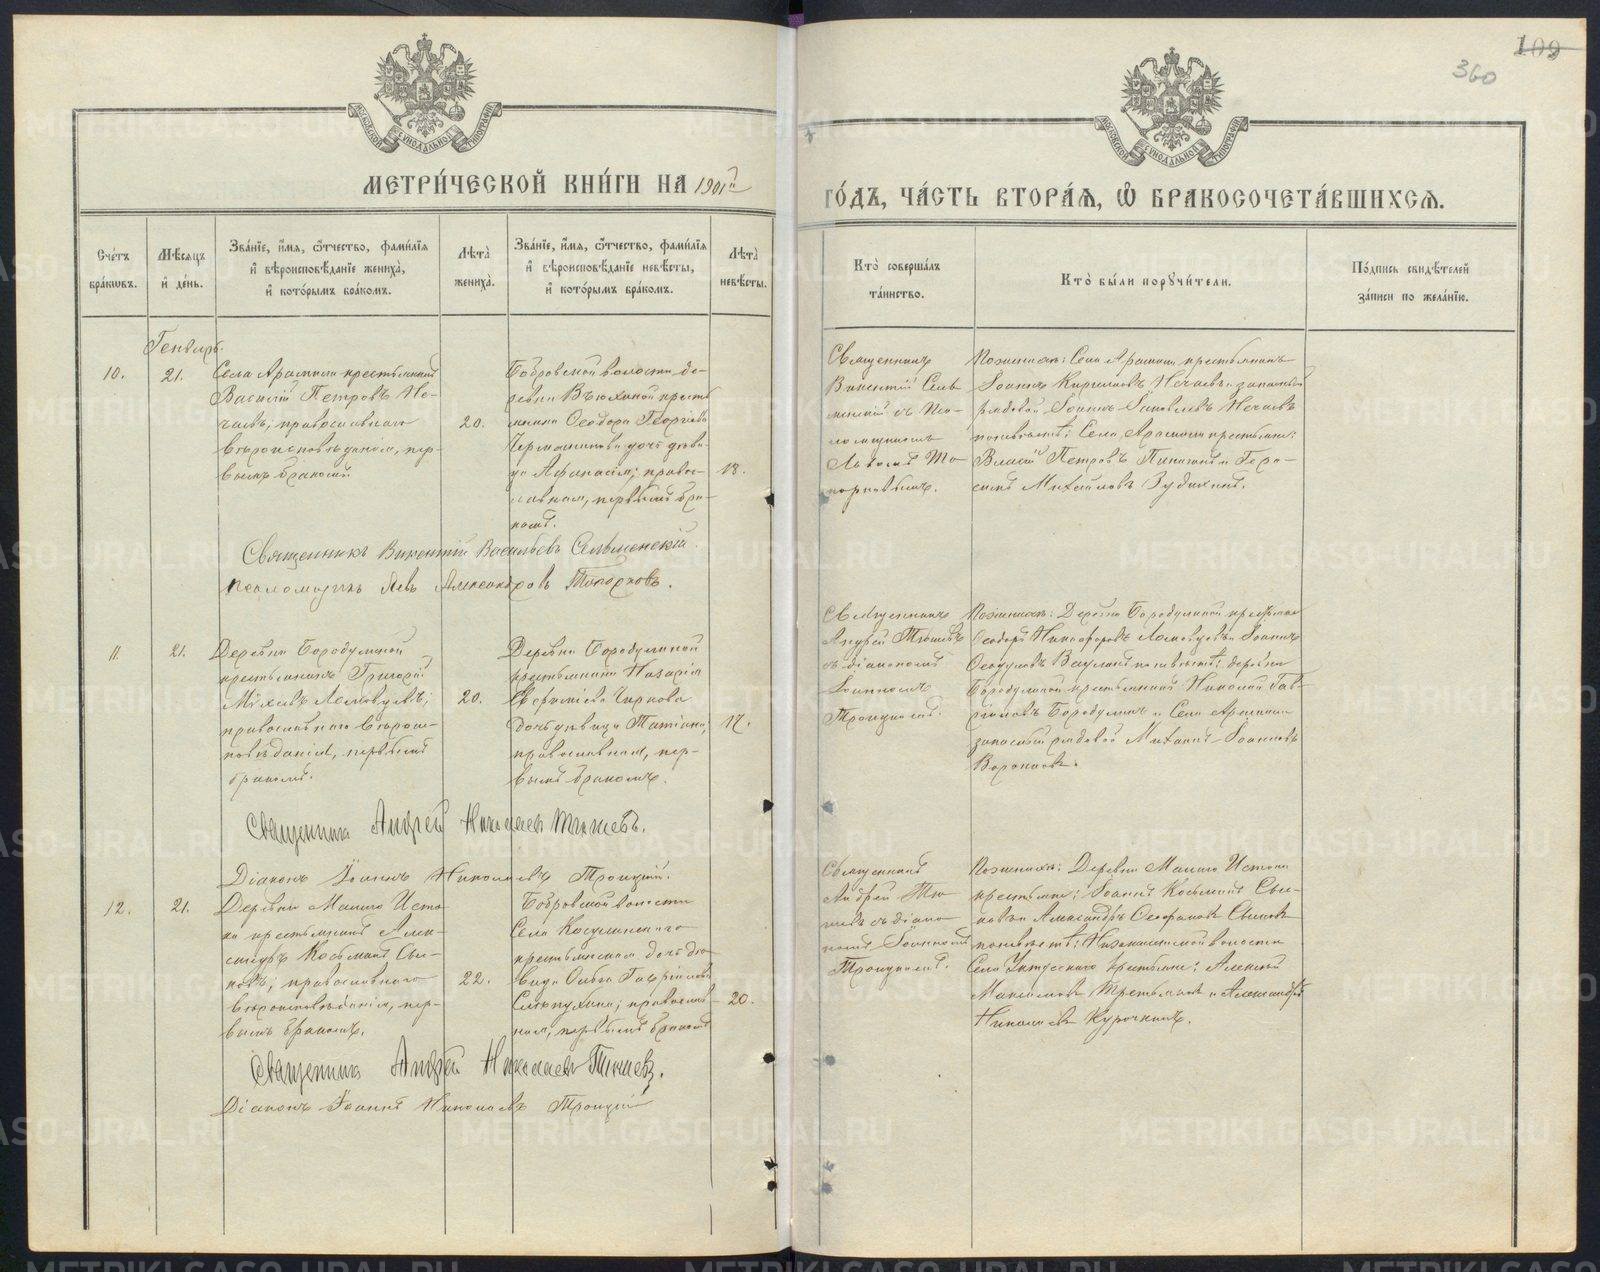 109
360
МОСКОВСКОЙ СѴНОДАЛЬНОЙ ТИПОГРАФІИ
МОСКОВСКОЙ СѴНОДАЛЬНОЙ ТИПОГРАФІИ
МЕТРИ́ЧЕСКОЙ КНИ́ГИ НА 1901й
ГО́ДЪ, ЧА́СТЬ ВТОРА́Ѧ, Ѽ БРАКОСОЧЕТА́ВШИХСѦ.
Сче́тъ бра́кѡвъ.
Мѣ́сѧцъ и҆ де́нь.
Зва́нїе, и҆́мѧ, ѻ҆́тчество, фами́лїѧ и҆ вѣроисповѣ́данїе жениха̀, и҆ кото́рымъ бра́комъ.
Лѣ́та жениха̀.
Зва́нїе, и҆́мѧ, ѻ҆́тчество, фами́лїѧ и҆ вѣроисповѣ́данїе невѣ́сты, и҆ кото́рымъ бра́комъ.
Лѣ́та невѣ́сты.
Кто̀ соверша́лъ та́инство.
Кто̀ бы́ли порꙋчи́тели.
По́дпись свидѣ́телей за́писи по жела́нїю.
Генварь.
10.
21.
Села Арамили крестьянинъ
Василій Петровъ Не-
чаевъ, православнаго
вѣроисповѣданія, пер-
вымъ бракомъ.
20.
Бобровской волости де-
ревни Вьюхиной кресть
янина Ѳеодора Георгіева
дочь дѣви-
ца Аѳанасія; правос-
лавная, первымъ бра-
комъ.
18.
Священникъ
Викентій Сель
менскій съ Пса-
ломщикомъ
Львомъ То-
порковымъ.
По женихѣ: Села Арамили крестьянинъ
Іоаннъ Кирилловъ Нечаевъ и запасный
рядовой Іоаннъ Іаковлевъ Нечаевъ
по невѣстѣ: Села Арамили крестьяне:
Власій Петровъ и Гера-
симъ Михайловъ
Священникъ Викентій Васильевъ Сельменскій.
Псаломщикъ Левъ Александровъ Топорковъ.
11.
21.
Деревни Бородулиной
крестьянинъ Григорій
православнаго вѣроис-
повѣданія, первымъ
бракомъ.
20.
Деревни Бородулиной
крестьянина Назарія
Евфиміева Чиркова
дочь дѣвица Татіана,
православная, пер-
вымъ бракомъ.
17.
Священникъ
Андрей Тюшевъ
съ діакономъ
Іоанномъ
Троицкимъ.
По женихѣ: Деревни Бородулиной крестьяне
Ѳеодоръ Никифоровъ и Іоаннъ
по невѣстѣ: деревни
Бородулиной крестьянинъ Николай Гав-
ріиловъ Бородулинъ и Села Арамили
запасный рядовой Михаилъ Іоанновъ
Священникъ Андрей Николаевъ Тюшевъ.
Діаконъ Іоаннъ Николаевъ Троицкій.
12.
21.
Деревни Малаго Исто
ка крестьянинъ Алек-
сандръ Косьминъ Сы-
ковъ; православнаго
вѣроисповѣданія, пер-
вымъ бракомъ.
22.
Бобровской волости
Села Косулинскаго
крестьянская дочь дѣ
вица Ольга Гавріилова
православ-
ная, первымъ бракомъ
20.
Священникъ
Андрей Тю
шевъ съ діако
номъ Іоанномъ
Троицкимъ.
По женихѣ: Деревни Малаго Истока
крестьяне: Іоаннъ Косьминъ Сы-
ковъ и Александръ
по невѣстѣ:
Села Уктусскаго крестьяне: Алексѣй
Максимовъ Третьяковъ и Александръ
Николаевъ Курочкинъ.
Священникъ Андрей Николаевъ Тюшевъ.
Діаконъ Іоаннъ Николаевъ Троицкій
METRIKI.GASO-URAL.RU